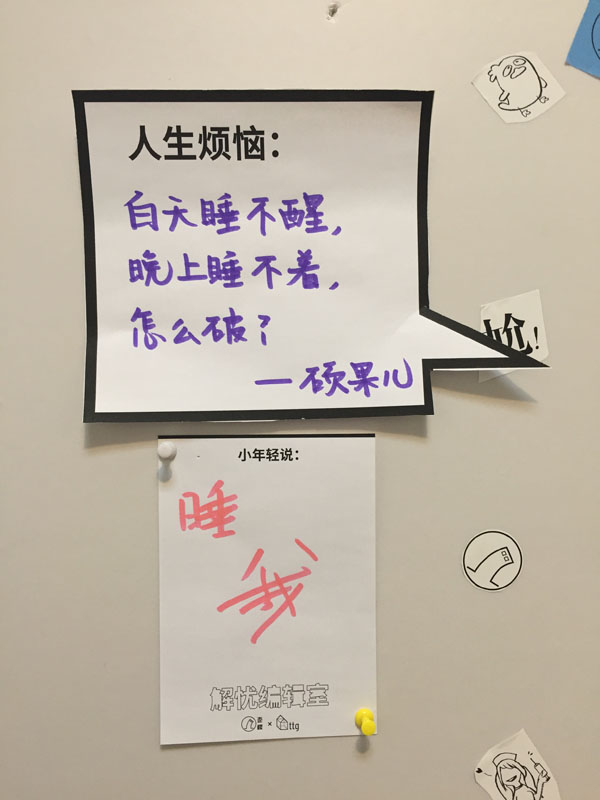 人生烦恼:
白天睡不醒,
晚上睡不着,
怎么破?
—硕果儿
尬!
小年轻说:
睡
我
解忧编辑室
× ttg